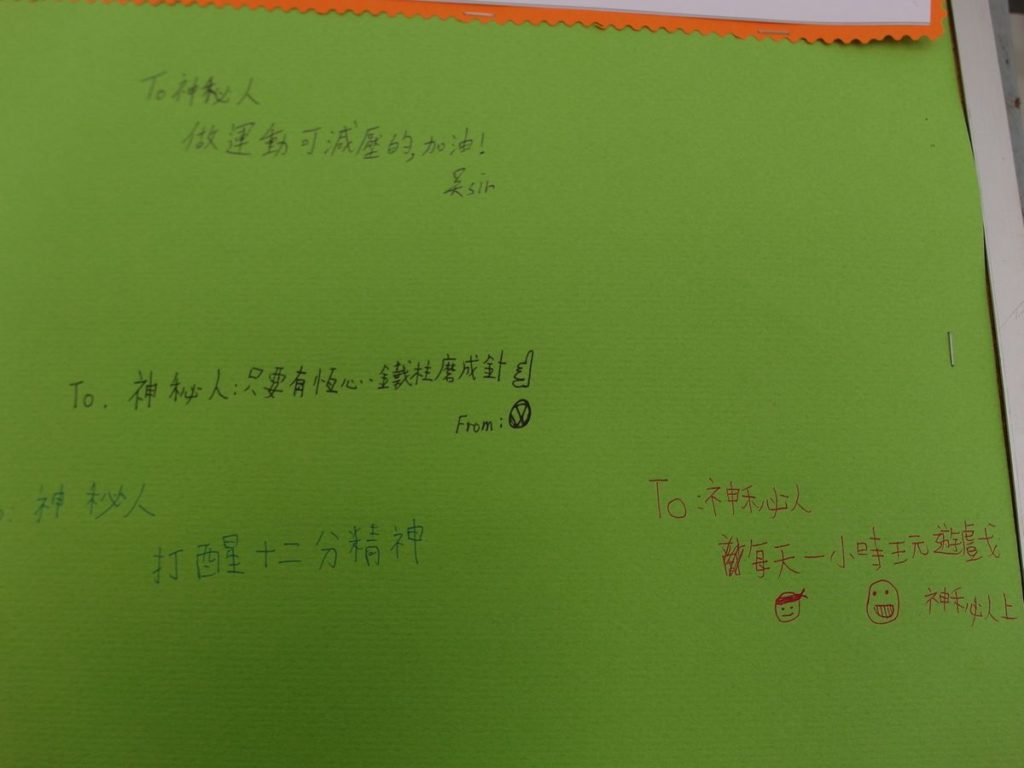 To 神秘人
做運動可減壓的,加油!
吳sir
To. 神秘人:只要有恆心..鐵柱磨成針
From:
: 神秘人
打醒十二分精神
To:神秘人
每天一小時玩遊戲
神秘人上